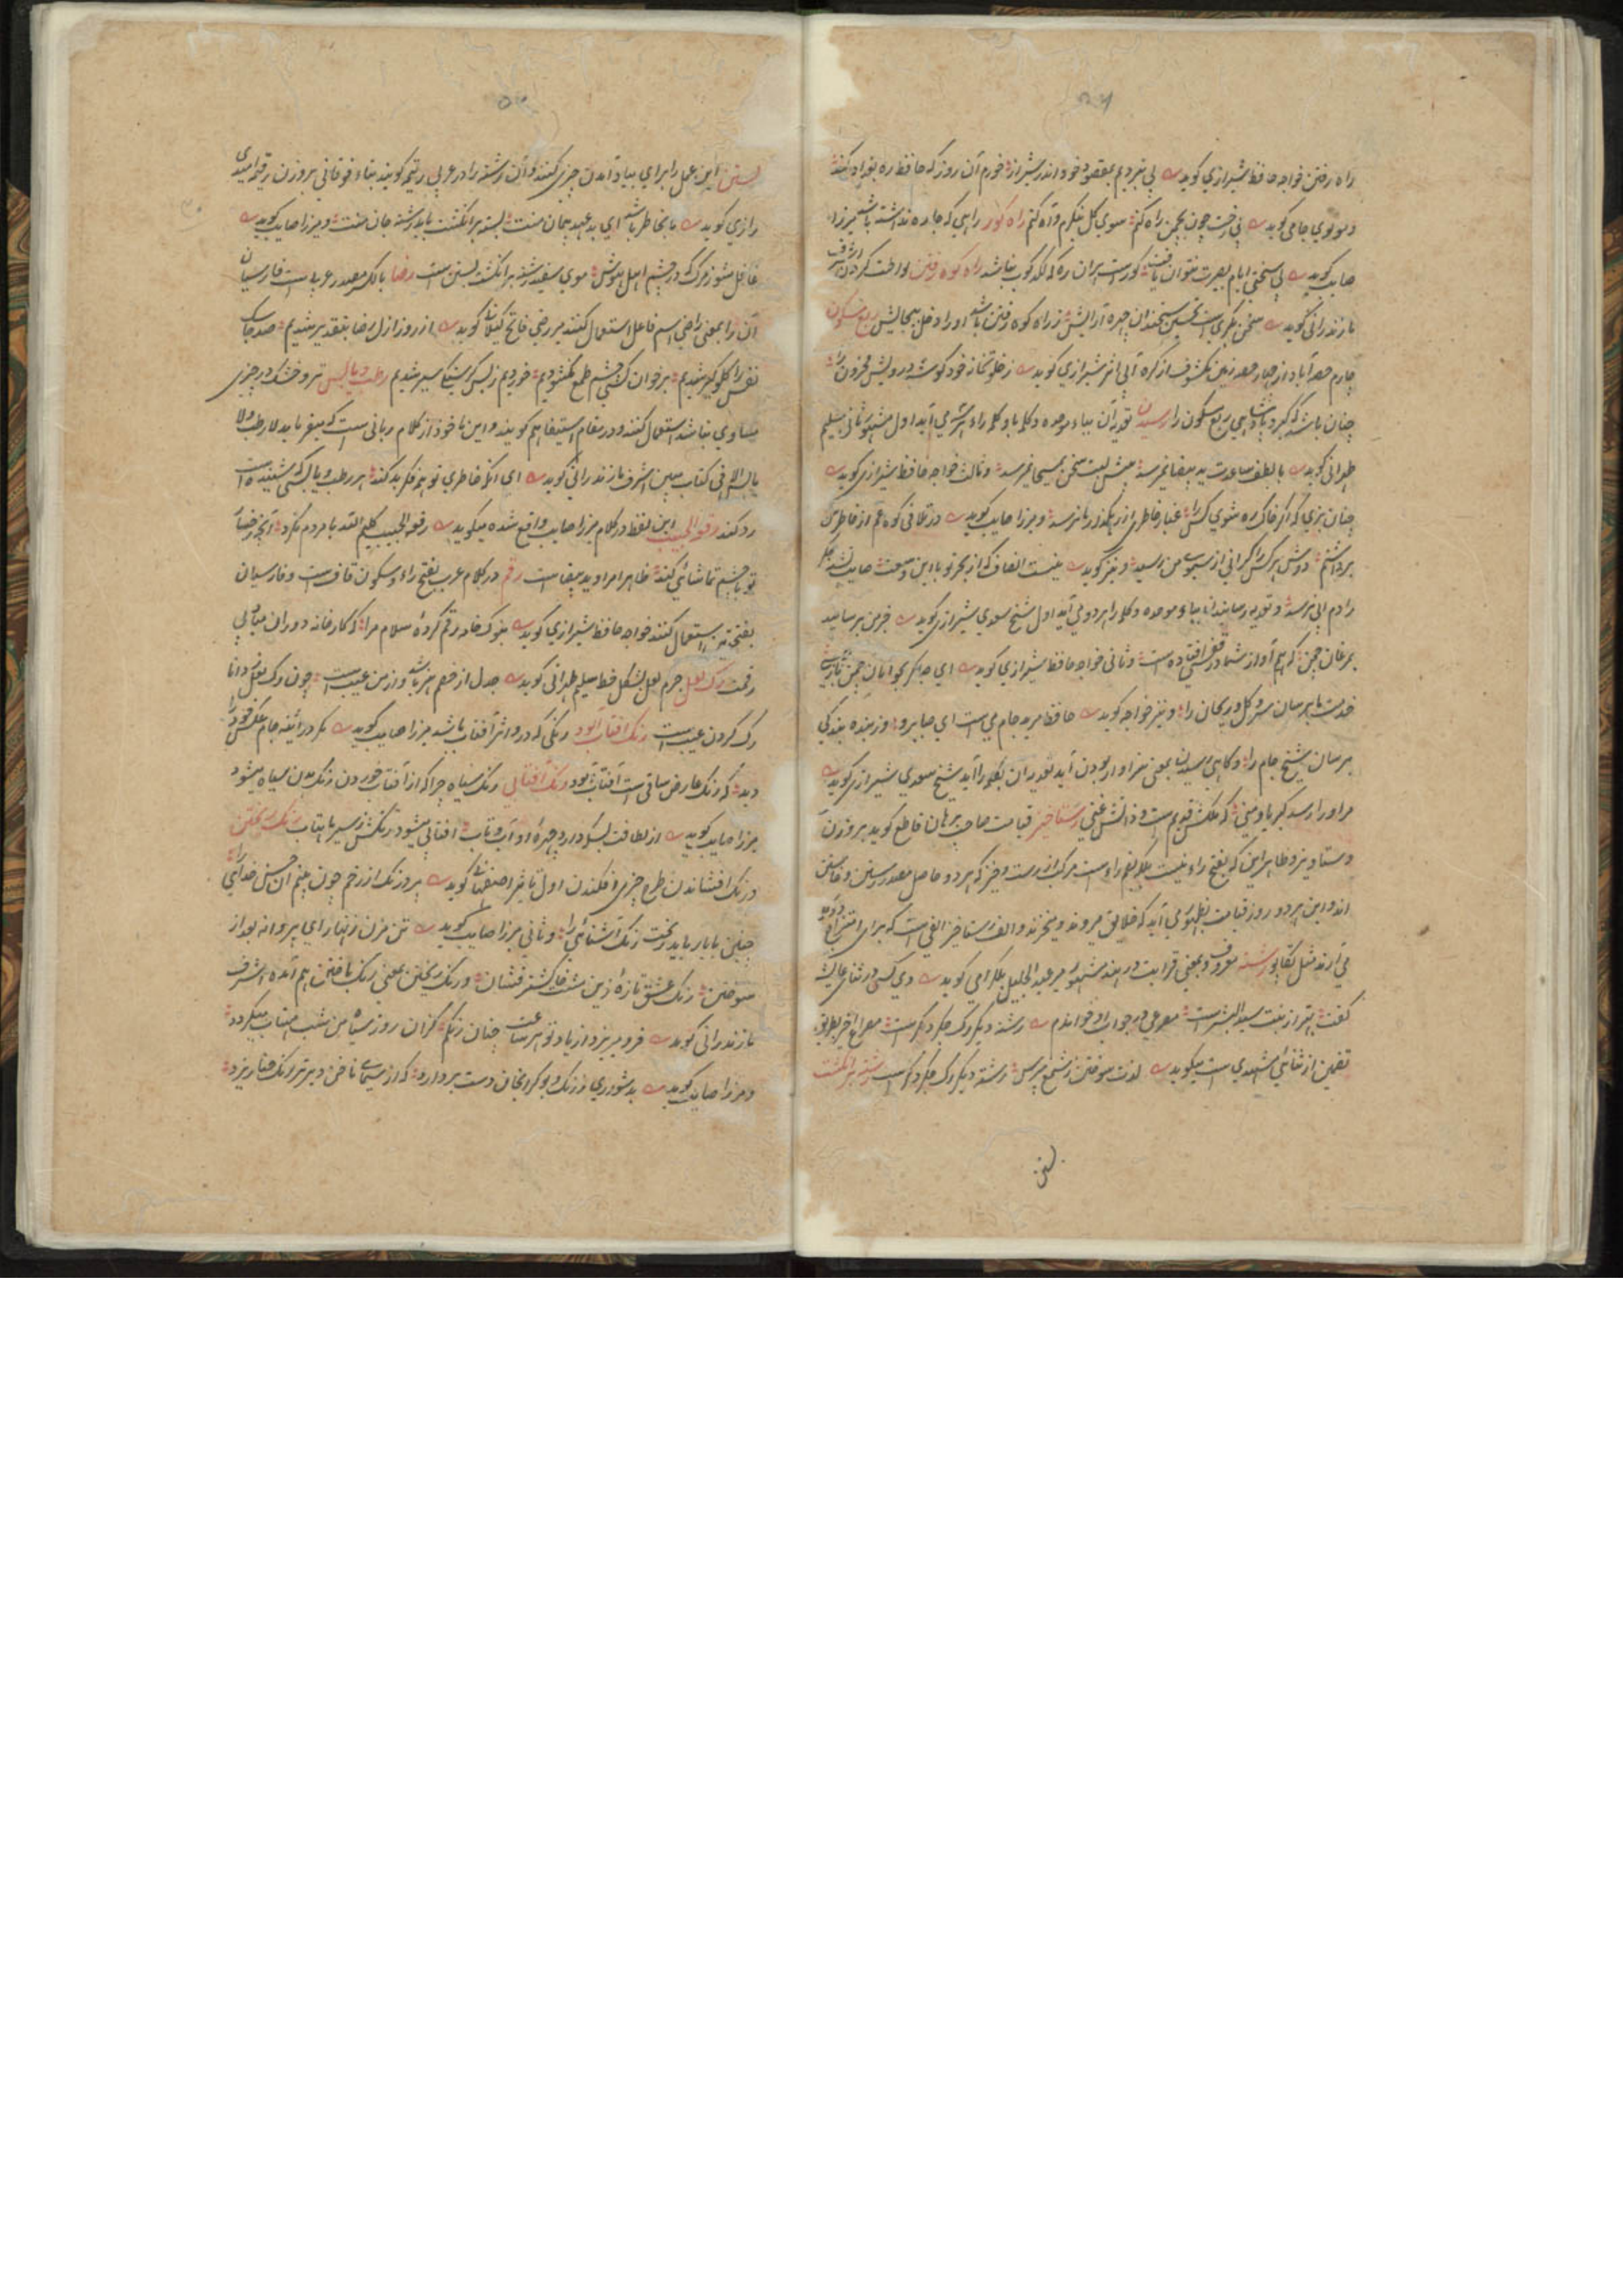 راه رفتن خواجه حافظ شیرازی گوید پی نبردیم بمقصود خود اندر شیراز خرم آن روز که حافظ ره بغداد کند
و مولوی جامی گوید بی رخت چون بچمن راه کنم سوی گل بنگرم و آه کنم راه کور راهی که جاده نداشته باشد میرزا
صایب گوید بی سختی ایام بصیرت نتوان یافت کورست بران ره که لگدکوب نباشد راه کوه رفتن لواطت کردن اشرف
مازندرانی گوید سخن بکریست تحسین سخندان چهره آرایش ز راه کوه رفتن باشد او را دخل بیجایش ربع مسکون
چارم حصه آباد از چهار حصه زمین مکشوف از کره آبی اثر شیرازی گوید ز خلوتخانه خود گوشه درویش محزون را
چنان باشد که گیرد پادشاهی ربع مسکون را رسیدن تعدیه آن بباء موحده و کلمه با و کلمه را می آید اول مشهور ثانی سلیم
طهرانی گوید با لطف ساعدت ید بیضا نمیرسد پیش لبت سخن بمسیحا نمیرسد و ثالث خواجه حافظ شیرازی گوید
چنان بزی که اگر خاک ره شوی کس را غبار خاطری از رهگذار ما نرسد و میرزا صایب گوید در تلافی کوه غم از خاطرش
برداشتم دوش هر کس را گرانی از سبوی من رسید و نیز گوید نیست انصاف که از بحر تو با این وسعت صایب تشنه جگر
را دم آبی نرسد و تعدیه رسانیدن بباء موحده و کلمه را هر دو می آید اول شیخ سعدی شیرازی گوید خبر من برسانید
بمرغان چمن که هم آواز شما در قفس افتادست و ثانی خواجه حافظ شیرازی گوید ای صبا گر بجوانان چمن باز رسی
خدمت ما برسان سرو و گل و ریحان را و نیز خواجه گوید حافظ مرید جام می است ای صبا برو وز بنده بندگی
برسان شیخ جام را و گاهی رسیدن بمعنی سزاوار بودن آید تعدیه آن بکلمه را آید شیخ سعدی شیرازی گوید
مر او را رسد کبریا و منی که ملکش قدیم است و ذاتش غنی رستاخیز قیامت صاحب برهان قاطع گوید بر وزن
دستاویز و ظاهر این که بفتح راء نیست بلکه بضم راء است مرکب از رست و خیز که هر دو حاصل مصدر رستن و خاستن
اند و این هر دو روز قیامت بظهور می آید که خلایق میروند و میخیزند و الف رستاخیز الفی است که برای امتزاج دو کلمه
می آرند مثل تکاپو رشته معروف و بمعنی قرابت در هند مشهور میر عبد الجلیل بلگرامی گوید دی کسی در ثنای عایشه
گفت بهتر از بنت سید البشرست مصرعی در جواب او خواندم رشته دیگر و رگ جگر دگرست مصراع اخیر بطریق
تضمین از ثنائی مشهدی است میگوید لذت سوختن ز شمع بپرس رشته دیگر و رگ جگر دگرست رشته بر انگشت
بستن
بستن این عمل را برای بیاد آمدن چیزی کنند و آن رشته را در عربی رتیمه گویند بتاء فوقانی بر وزن رقیمه امیدی
رازی گوید تا بخاطر باشد ای بد عهد پیمان منت بسته بر انگشت باید رشته جان منت و میرزا صایب گوید
غافل مشو ز مرگ که در چشم اهل هوش موی سفید رشته بر انگشت بستن است رضا بالکسر مصدر عربیست فارسیان
آن را بمعنی راضی اسم فاعل استعمال کنند میر رضی فاتح گیلانی گوید از روز ازل رضا بتقدیر شدیم صد جا
نفس را گلوگیر شدیم بر خوان کسی چشم طمع نگشودیم خوردیم ز بس گرسنگی سیر شدیم رطب و یابس تر و خشک در چیزی
مساوی نباشد استعمال کنند و در مقام استیفا هم گویند و این ماخوذ از کلام ربانی است که میفرماید لا رطب و لا
یابس الا فی کتاب مبین اشرف مازندرانی گوید ای آنکه خاطری تو هر فکر بد کند هر رطب و یابسی که شنیده است
رد کند رفو الحبیب این لفظ در کلام میرزا صایب واقع شده میگوید رفو الحبیب کلیم الله با مردم نکرد آنچه رخسار
تو با چشم تماشائی کند ظاهرا مراد ید بیضا است رقم در کلام عرب بفتح راء و سکون قاف است و فارسیان
بفتحتین استعمال کنند خواجه حافظ شیرازی گوید بنوک خامه رقم کرده سلام مرا که کارخانه دوران مباد بی
رقمت رگ لعل جرم لعل بشکل خط سلیم طهرانی گوید جدل از خصم هنر باشد و از من عیب است چون رگ لعل ز دانا
رگ گردن عیب است رنگ آفتاب آلود رنگی که درو اثر آفتاب باشد میرزا صایب گوید مگر در آئینه جام عکس خود را
دید که رنگ عارض ساقی است آفتاب آلود و رنگ آفتابی رنگ سیاه چرا که از آفتاب خوردن رنگ بدن سیاه میشود
میرزا صایب گوید از لطافت بسکه دارد چهره او آب و تاب آفتابی میشود رنگش ز سیر ماهتاب رنگ ریختن
و رنگ افشاندن طرح چیزی افکندن اول تاثیر اصفهانی گوید هر رنگ از رخم چون بینم آن حسن خدائی را
چنین با یار باید ریخت رنگ آشنائی را و ثانی میرزا صایب گوید تن مزن زنهار ای پروانه بعد از
سوختن رنگ عشق تازه ازین مشت خاکستر فشان و رنگ ریختن بمعنی رنگ باختن هم آمده اشرف
مازندرانی گوید فرو میریزد از یاد تو هر ساعت چنان رنگم کزان روز سیاه من شب مهتاب میگردد
و میرزا صایب گوید بدشواری ز رنگ و بو کریمان دست بردارد که از سیمای ناخن دیرتر رنگ حنا ریزد